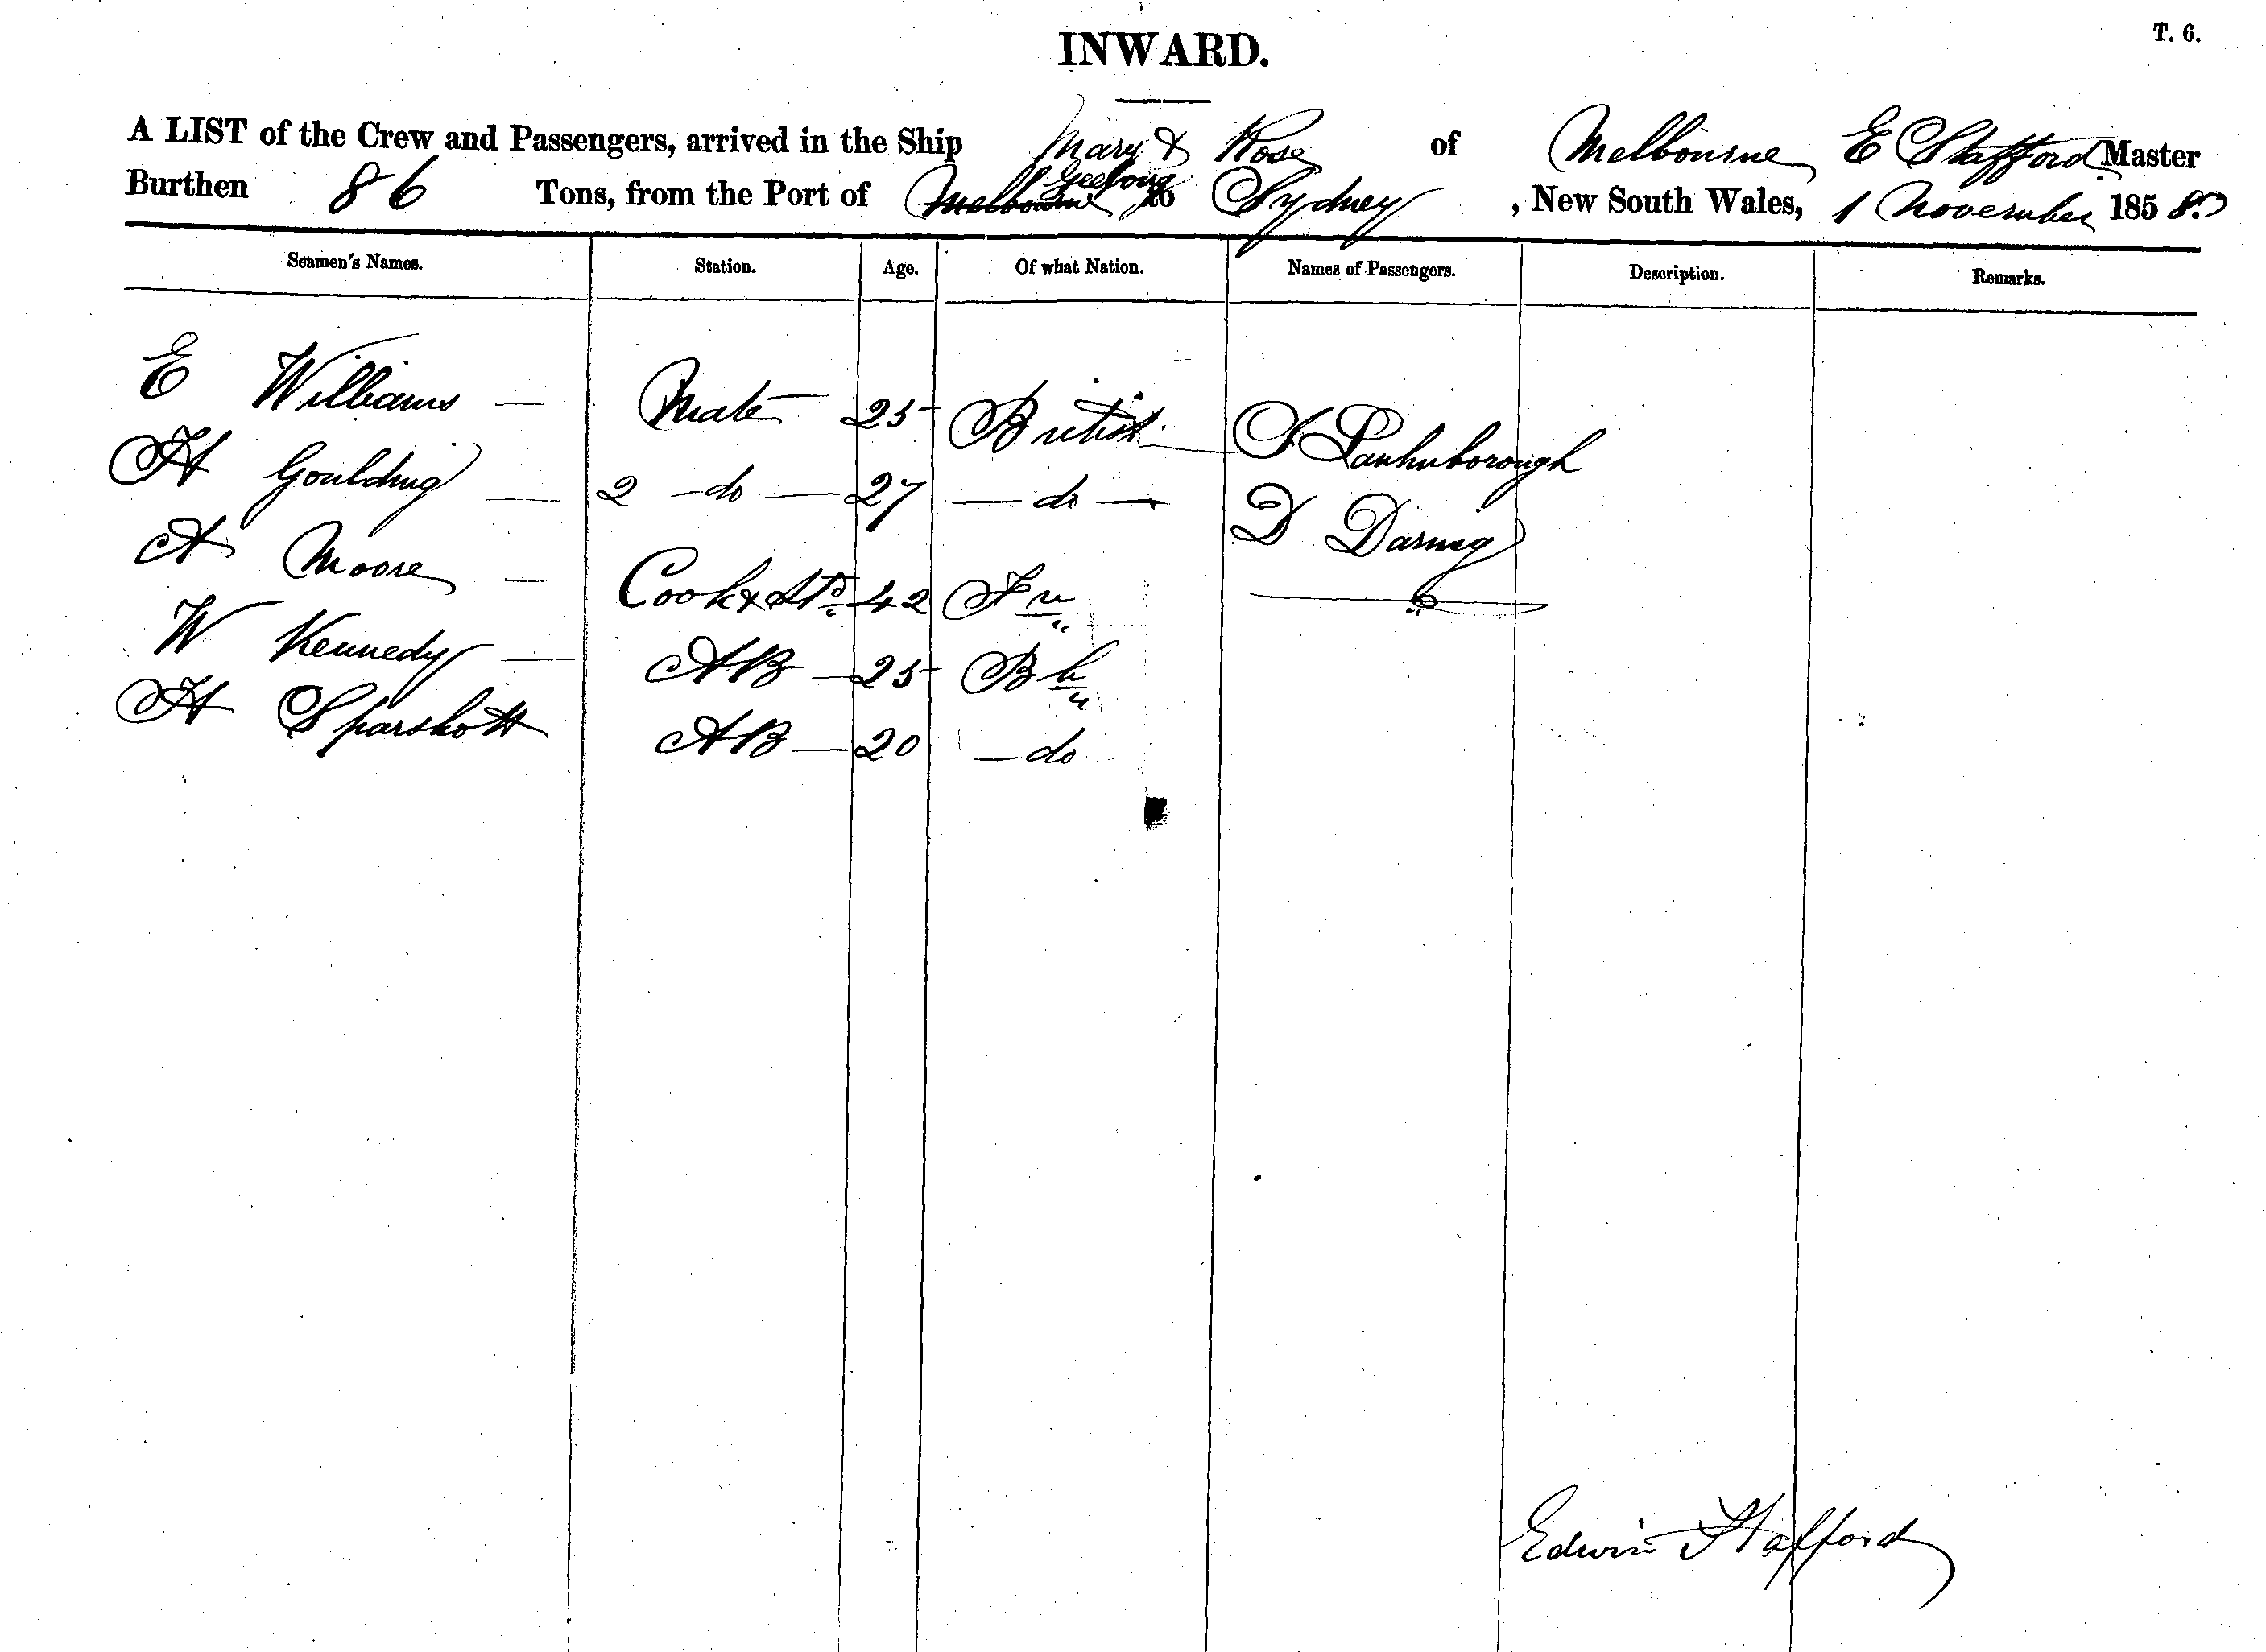 T. 6.
INWARD.
A LIST of the Crew and Passengers, arrived in the Ship Mary & Rose of Melbourne E Stafford Master
Burthen 86 Tons, from the Port of Melbourne Geelong to Sydney, New South Wales, 1 November 1858
Seamen's Names. Station. Age. Of what Nation. Names of Passengers. Description. Remarks.
E Williams — Mate 25 British
H Goulding — 2 - do — 27 — do —
A Moore — Cook & Std 42 Fn
W Kennedy — AB — 25 Bh
H Sparshott AB — 20 — do
D Daring
Edwin Stafford